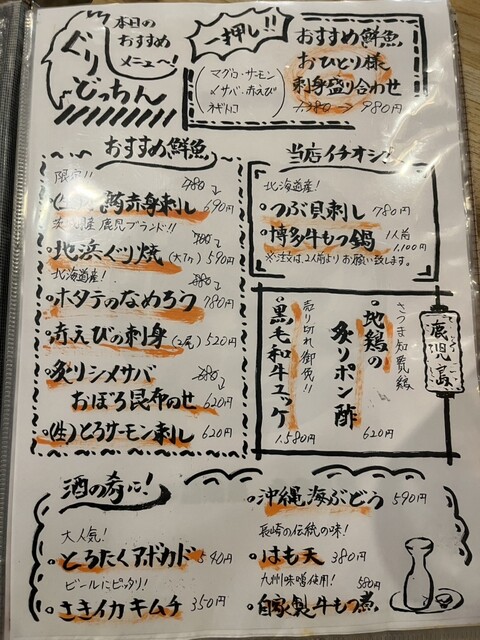 本日の
おすすめ
メニュー〜!
ぐり
どっちん
一押し!!
おすすめ鮮魚
おひとり様
刺身盛り合わせ
1,380→980円
(マグロ・サーモン
〆サバ・赤えび
ネギトロ)
おすすめ鮮魚
限定!!
780
(生)
鮪赤身刺し 690円
産 鹿児ブランド!!
780
地浜ぐり焼(大1ヶ)590円
北海道産!
880
ホタテのなめろう 780円
赤えびの刺身(2尾)520円
炙りシメサバ
おぼろ昆布のせ 620円
(生)とろサーモン刺し 620円
当店イチオシ!
北海道産!
つぶ貝刺し 780円
博多牛もつ鍋 1人前
1,100円
※ご注文は、2人前よりお願い致します。
鹿児島
さつま知覧鶏
地鶏の
炙りポン酢
620円
売り切れ御免!!
黒毛和牛ユッケ
1,580円
酒の肴に!
大人気!
とろたくアボカド 590円
ビールにピッタリ!
さきイカキムチ 350円
沖縄海ぶどう 590円
長崎の伝統の味!
はも天 380円
九州味噌使用! 580円
自家製牛もつ煮